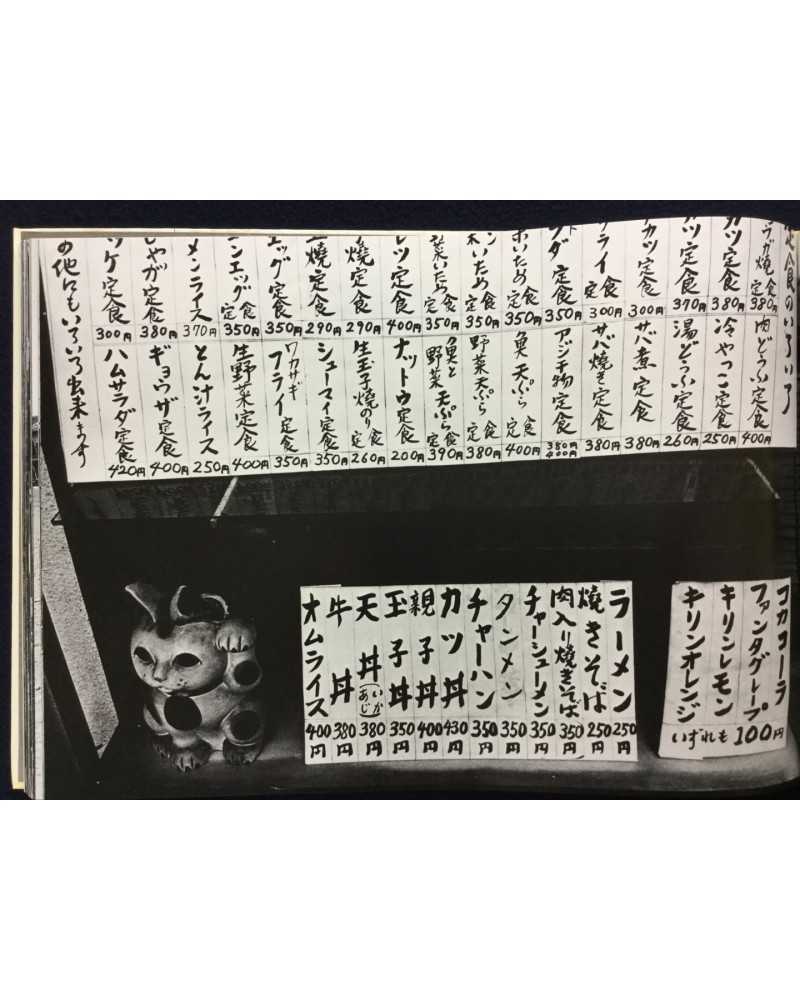 定食のいろいろ
ガ焼定食 380円
カツ定食 380円
カツ定食 370円
カツ定食 300円
ライ定食 300円
ダ定食 350円
いため定食 350円
いため定食 350円
菜いため定食 350円
レツ定食 400円
焼定食 290円
焼定食 290円
エッグ定食 350円
ンエッグ定食 350円
メンライス 370円
しゃが定食 380円
ッケ定食 300円
肉どうふ定食 400円
冷やっこ定食 250円
湯どうふ定食 260円
サバ煮定食 380円
サバ焼き定食 380円
アジ干物定食 380円 400円
魚天ぷら定食 400円
野菜天ぷら定食 380円
魚と野菜天ぷら定食 390円
ナットウ定食 200円
生玉子焼のり定食 260円
シューマイ定食 350円
ワカサギフライ定食 350円
生野菜定食 400円
とん汁ライス 250円
ギョウザ定食 400円
ハムサラダ定食 420円
の他にもいろいろ出来ます
ラーメン 250円
焼きそば 250円
肉入り焼きそば 350円
チャーシューメン 350円
タンメン 350円
チャーハン 350円
カツ丼 430円
親子丼 400円
玉子丼 350円
天丼(いかあじ) 380円
牛丼 380円
オムライス 400円
コカコーラ
ファンタグレープ
キリンレモン
キリンオレンジ
いずれも100円